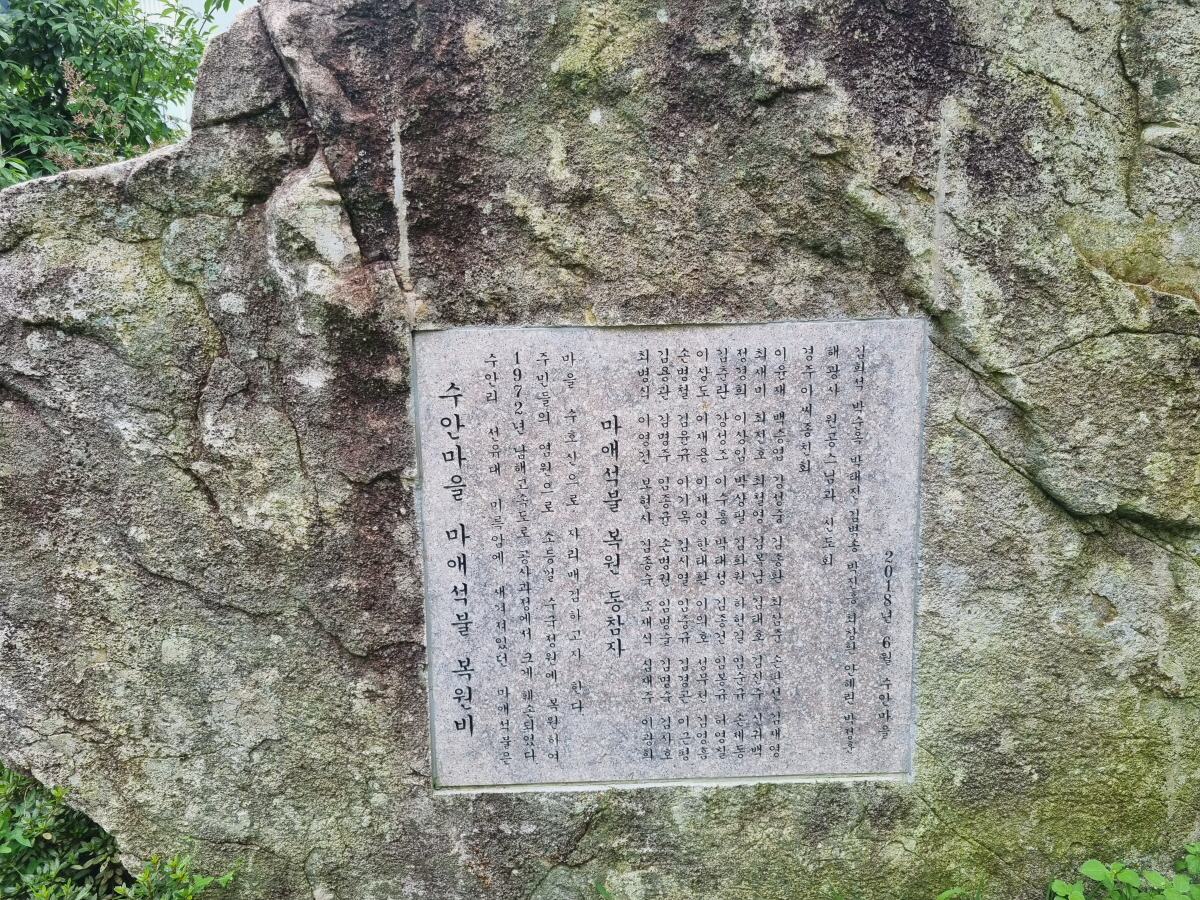 수안마을 마애석불 복원비
수안리 선유대 미륵암에 새겨져있던 마애석불은
1972년 남해고속도로 공사과정에서 크게 훼손되었다
주민들의 염원으로 수국정원에 복원하여
마을 수호신으로 자리매김하고자 한다
마애석불 복원 동참자
최병식 이영건 보현사 김종숙 조재식 심재주 이광희
김용관 김명주 임종균 손병원 임병술 김명숙 김지호
손병철 김윤규 이기옥 김시열 임승규 김경곤 이근평
이상도 이재용 이재영 한태환 이의호 성무천 김영흠
김춘란 강성조 이수흥 박태성 김종건 임봉규 허영철
정경희 이상일 박상필 김화원 하현길 염순규 손제동
최재미 최진호 최형영 김복남 김태호 김진수 신귀백
이윤재 백승엽 강선출 김종화 최삼준 손판선 김재영
경주이씨종친회
해광사 원공스님과 신도회
김희석 박순옥 박태진 김병송 박진동 최삼환 안혜린 박정훈
2018년 6월 수안마을